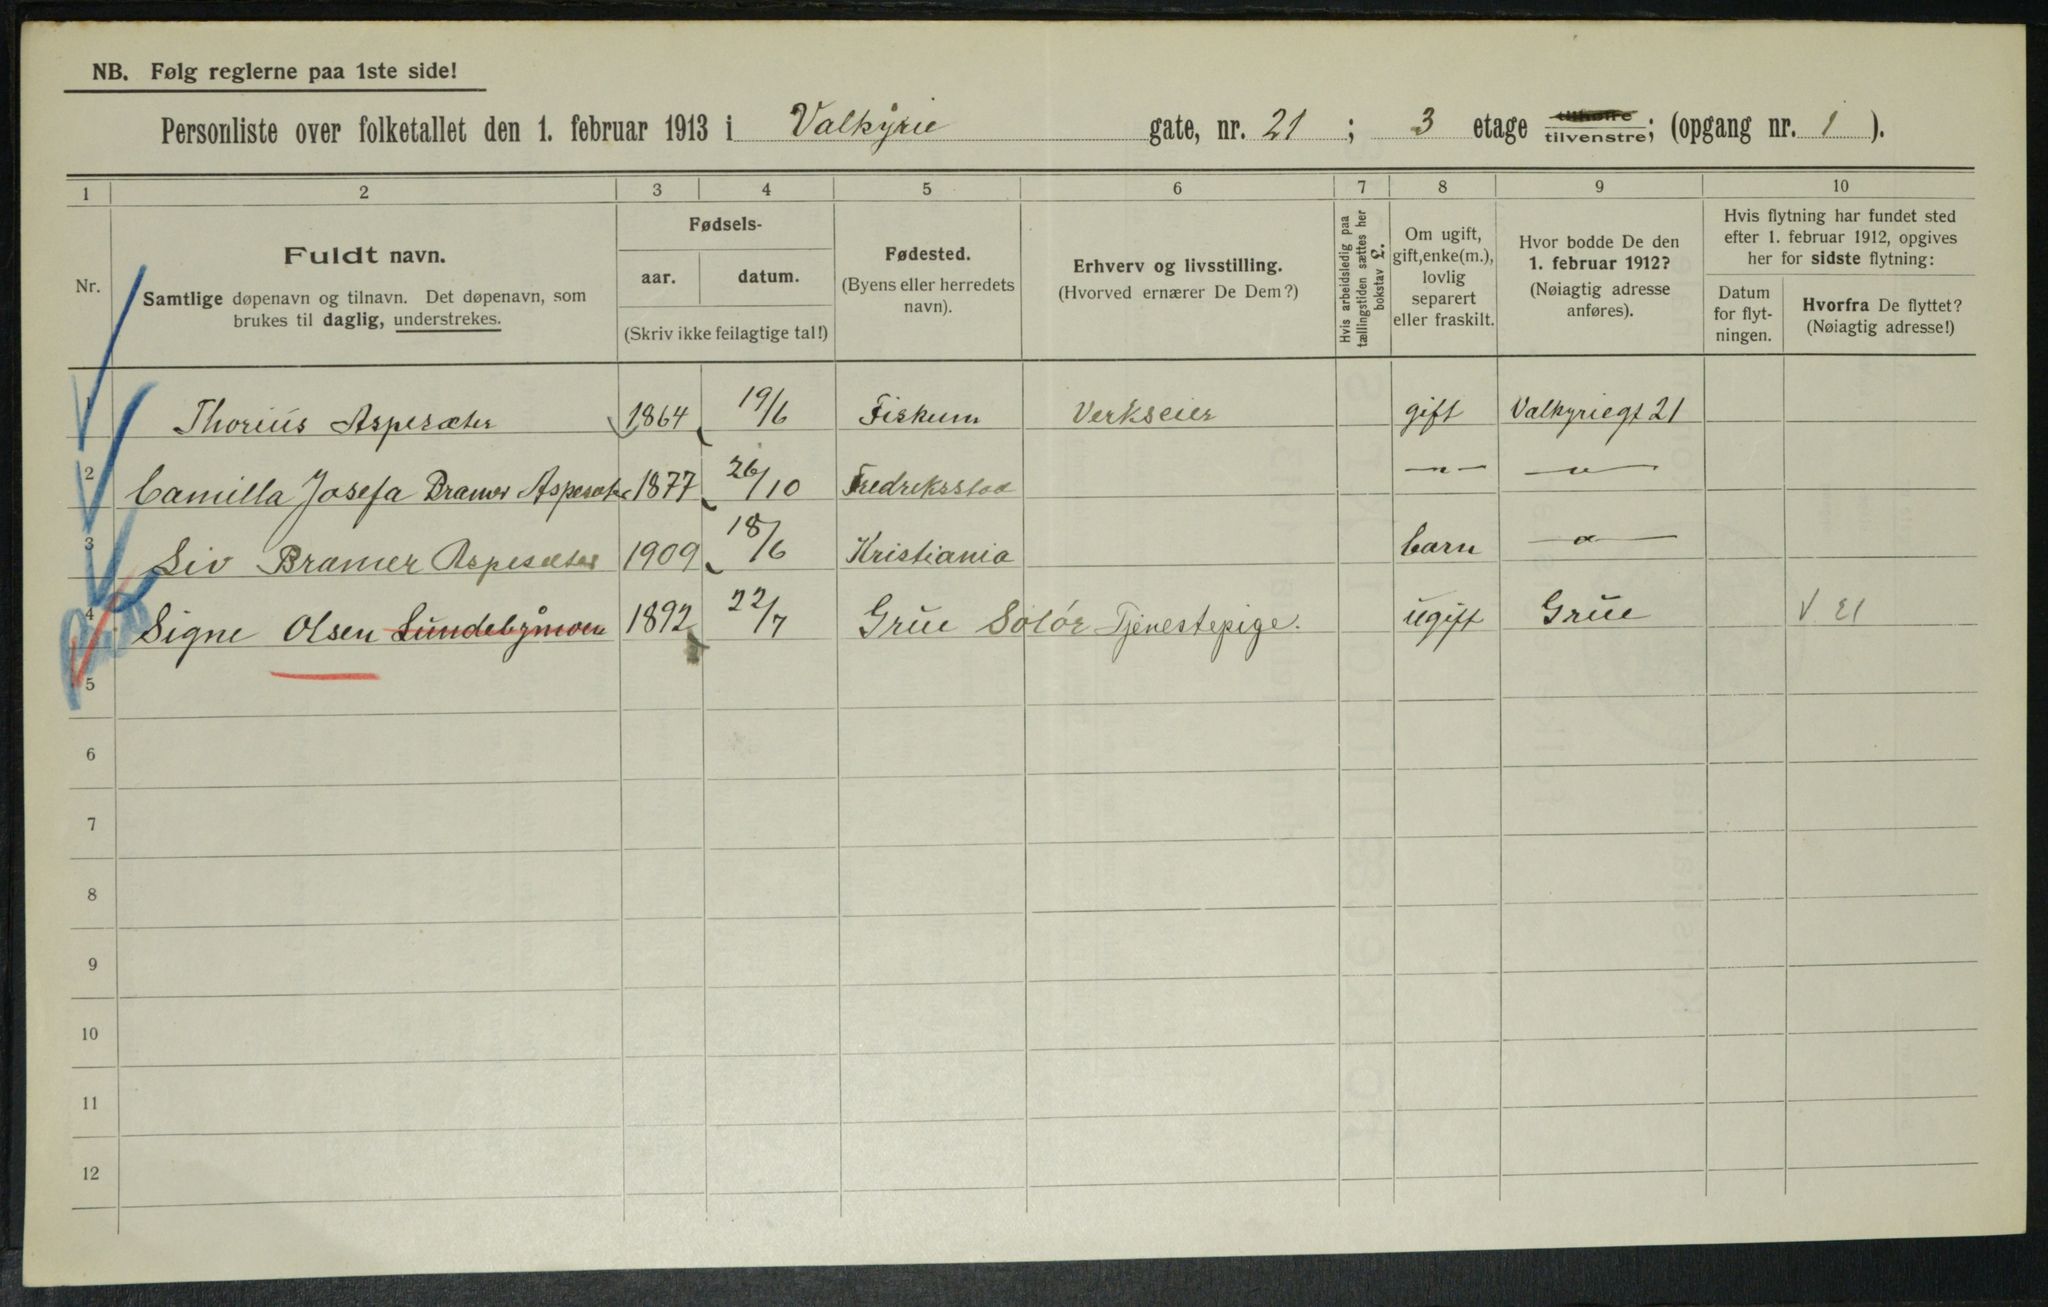 NB. Følg reglerne paa 1ste side!
Personliste over folketallet den 1. februar 1913 i Valkyrie gate, nr. 21 ; 3 etage tilhøire tilvenstre; (opgang nr. 1 ).
1 2 3 4 5 6 7 8 9 10
Nr.
Fuldt navn.
Samtlige døpenavn og tilnavn. Det døpenavn, som
brukes til daglig, understrekes.
Fødsels-
aar. datum.
(Skriv ikke feilagtige tal!)
Fødested.
(Byens eller herredets
navn).
Erhverv og livsstilling.
(Hvorved ernærer De Dem?)
Hvis arbeidsledig paa
tællingstiden sættes her
bokstav L.
Om ugift,
gift, enke(m.),
lovlig
separert
eller fraskilt.
Hvor bodde De den
1. februar 1912?
(Nøiagtig adresse
anføres).
Hvis flytning har fundet sted
efter 1. februar 1912, opgives
her for sidste flytning:
Datum
for flyt-
ningen.
Hvorfra De flyttet?
(Nøiagtig adresse!)
1 Thorius Aspesæter 1864 19/6 Fiskum Verkseier gift Valkyriegt 21
2 Camilla Josefa Bramer Aspesæte 1877 26/10 Fredriksstad —"— —"—
3 Siv Bramer Aspesæter 1909 18/6 Kristiania barn —"—
4 Signe Olsen Lundebymoen 1892 22/7 Grue Solør Tjenestepige. ugift Grue V El
5
6
7
8
9
10
11
12